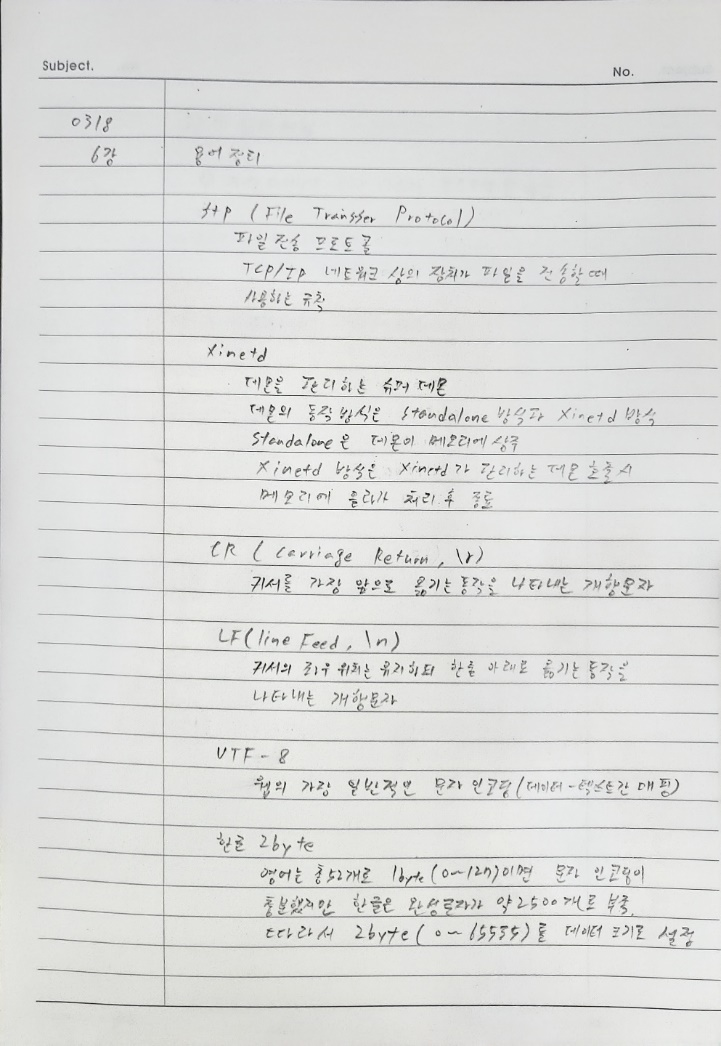 Subject.
No.
0318
6강 용어 정리
ftp (File Transfer Protocol)
파일 전송 프로토콜
TCP/IP 네트워크 상의 장치가 파일을 전송할 때
사용하는 규칙
Xinetd
데몬을 관리하는 슈퍼 데몬
데몬의 동작 방식은 Standalone 방식과 Xinetd 방식
Standalone은 데몬이 메모리에 상주
Xinetd 방식은 Xinetd가 관리하는 데몬 호출 시
메모리에 올라가 처리 후 종료
CR ( Carriage Return, \r)
커서를 가장 앞으로 옮기는 동작을 나타내는 개행문자
LF(line Feed, \n)
커서의 좌우 위치는 유지하되 한줄 아래로 옮기는 동작을
나타내는 개행문자
UTF-8
웹의 가장 일반적인 문자 인코딩(데이터-텍스트간 매핑)
한글 2byte
영어는 총52개로 1byte(0~127)이면 문자 인코딩이
충분했지만 한글은 완성글자가 약2500개로 부족.
따라서 2byte(0~65535)를 데이터 크기로 설정